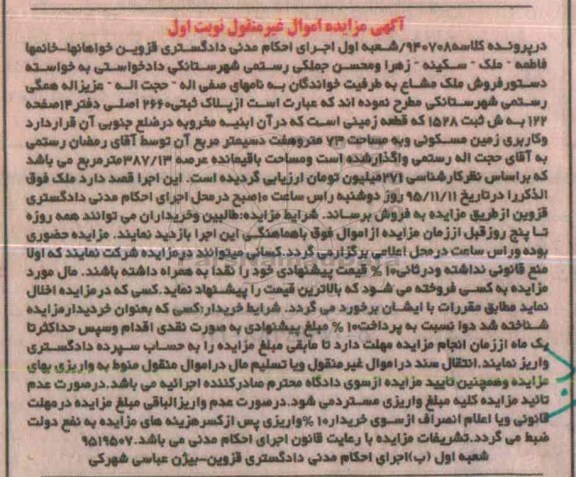 آگهی مزایده اموال غیرمنقول نوبت اول
درپرونده کلاسه۹۴۰۷۰۸/شعبه اول اجرای احکام مدنی دادگستری قزوین خواهانها-خانمها
فاطمه - ملک - سکینه - زهرا ومحسن جملکی رستمی شهرستانکی دادخواستی به خواسته
دستورفروش ملک مشاع به طرفیت خواندگان به نامهای صفی اله - حجت اله - عزیزاله همگی
رستمی شهرستانکی مطرح نموده اند که عبارت است ازپلاک ثبتی۲۶۶۰ اصلی دفتر۱۴صفحه
۱۲۲ به ش ثبت ۱۵۲۸ که قطعه زمینی است که درآن ابنیه مخروبه درضلع جنوبی آن قراردارد
وکاربری زمین مسکونی وبه مساحت ۷۳ متروهفت دسیمتر مربع آن توسط آقای رمضان رستمی
به آقای حجت اله رستمی واگذارشده است ومساحت باقیمانده عرصه ۳۸۷/۱۳مترمربع می باشد
که براساس نظرکارشناسی ۲۷۱میلیون تومان ارزیابی گردیده است. این اجرا قصد دارد ملک فوق
الذکررا درتاریخ ۹۵/۱۱/۱۱ روز دوشنبه راس ساعت ۱۰صبح درمحل اجرای احکام مدنی دادگستری
قزوین ازطریق مزایده به فروش برساند. شرایط مزایده:طالبین وخریداران می توانند همه روزه
تا پنج روزقبل اززمان مزایده ازاموال فوق باهماهنگی این اجرا بازدید نمایند. مزایده حضوری
بوده وراس ساعت درمحل اعلامی برگزارمی گردد.کسانی میتوانند درمزایده شرکت نمایند که اولا
منع قانونی نداشته وثانی۱۰ % قیمت پیشنهادی خود را نقدا به همراه داشته باشند. مال مورد
مزایده به کسی فروخته می شود که بالاترین قیمت را پیشنهاد نماید.کسی که درمزایده اخلال
نماید مطابق مقررات با ایشان برخورد می گردد. شرایط خریدار:کسی که بعنوان خریدارمزایده
شناخته شد دوا نسبت به پرداخت۱۰ % مبلغ پیشنهادی به صورت نقدی اقدام وسپس حداکثرتا
یک ماه اززمان انجام مزایده مهلت دارد تا مابقی مبلغ مزایده را به حساب سپرده دادگستری
واریز نمایند.انتقال سند دراموال غیرمنقول ویا تسلیم مال دراموال منقول منوط به واریزی بهای
مزایده وهمچنین تایید مزایده ازسوی دادگاه محترم صادرکننده اجرائیه می باشد.درصورت عدم
تائید مزایده کلیه مبلغ واریزی مستردمی شود.درصورت عدم واریزالباقی مبلغ مزایده درمهلت
قانونی ویا اعلام انصراف ازسوی خریدار۱۰ %واریزی پس ازکسرهزینه های مزایده به نفع دولت
ضبط می گردد.تشریفات مزایده با رعایت قانون اجرای احکام مدنی می باشد.۹۵۱۹۵۰۷
شعبه اول (ب)اجرای احکام مدنی دادگستری قزوین-بیژن عباسی شهرکی